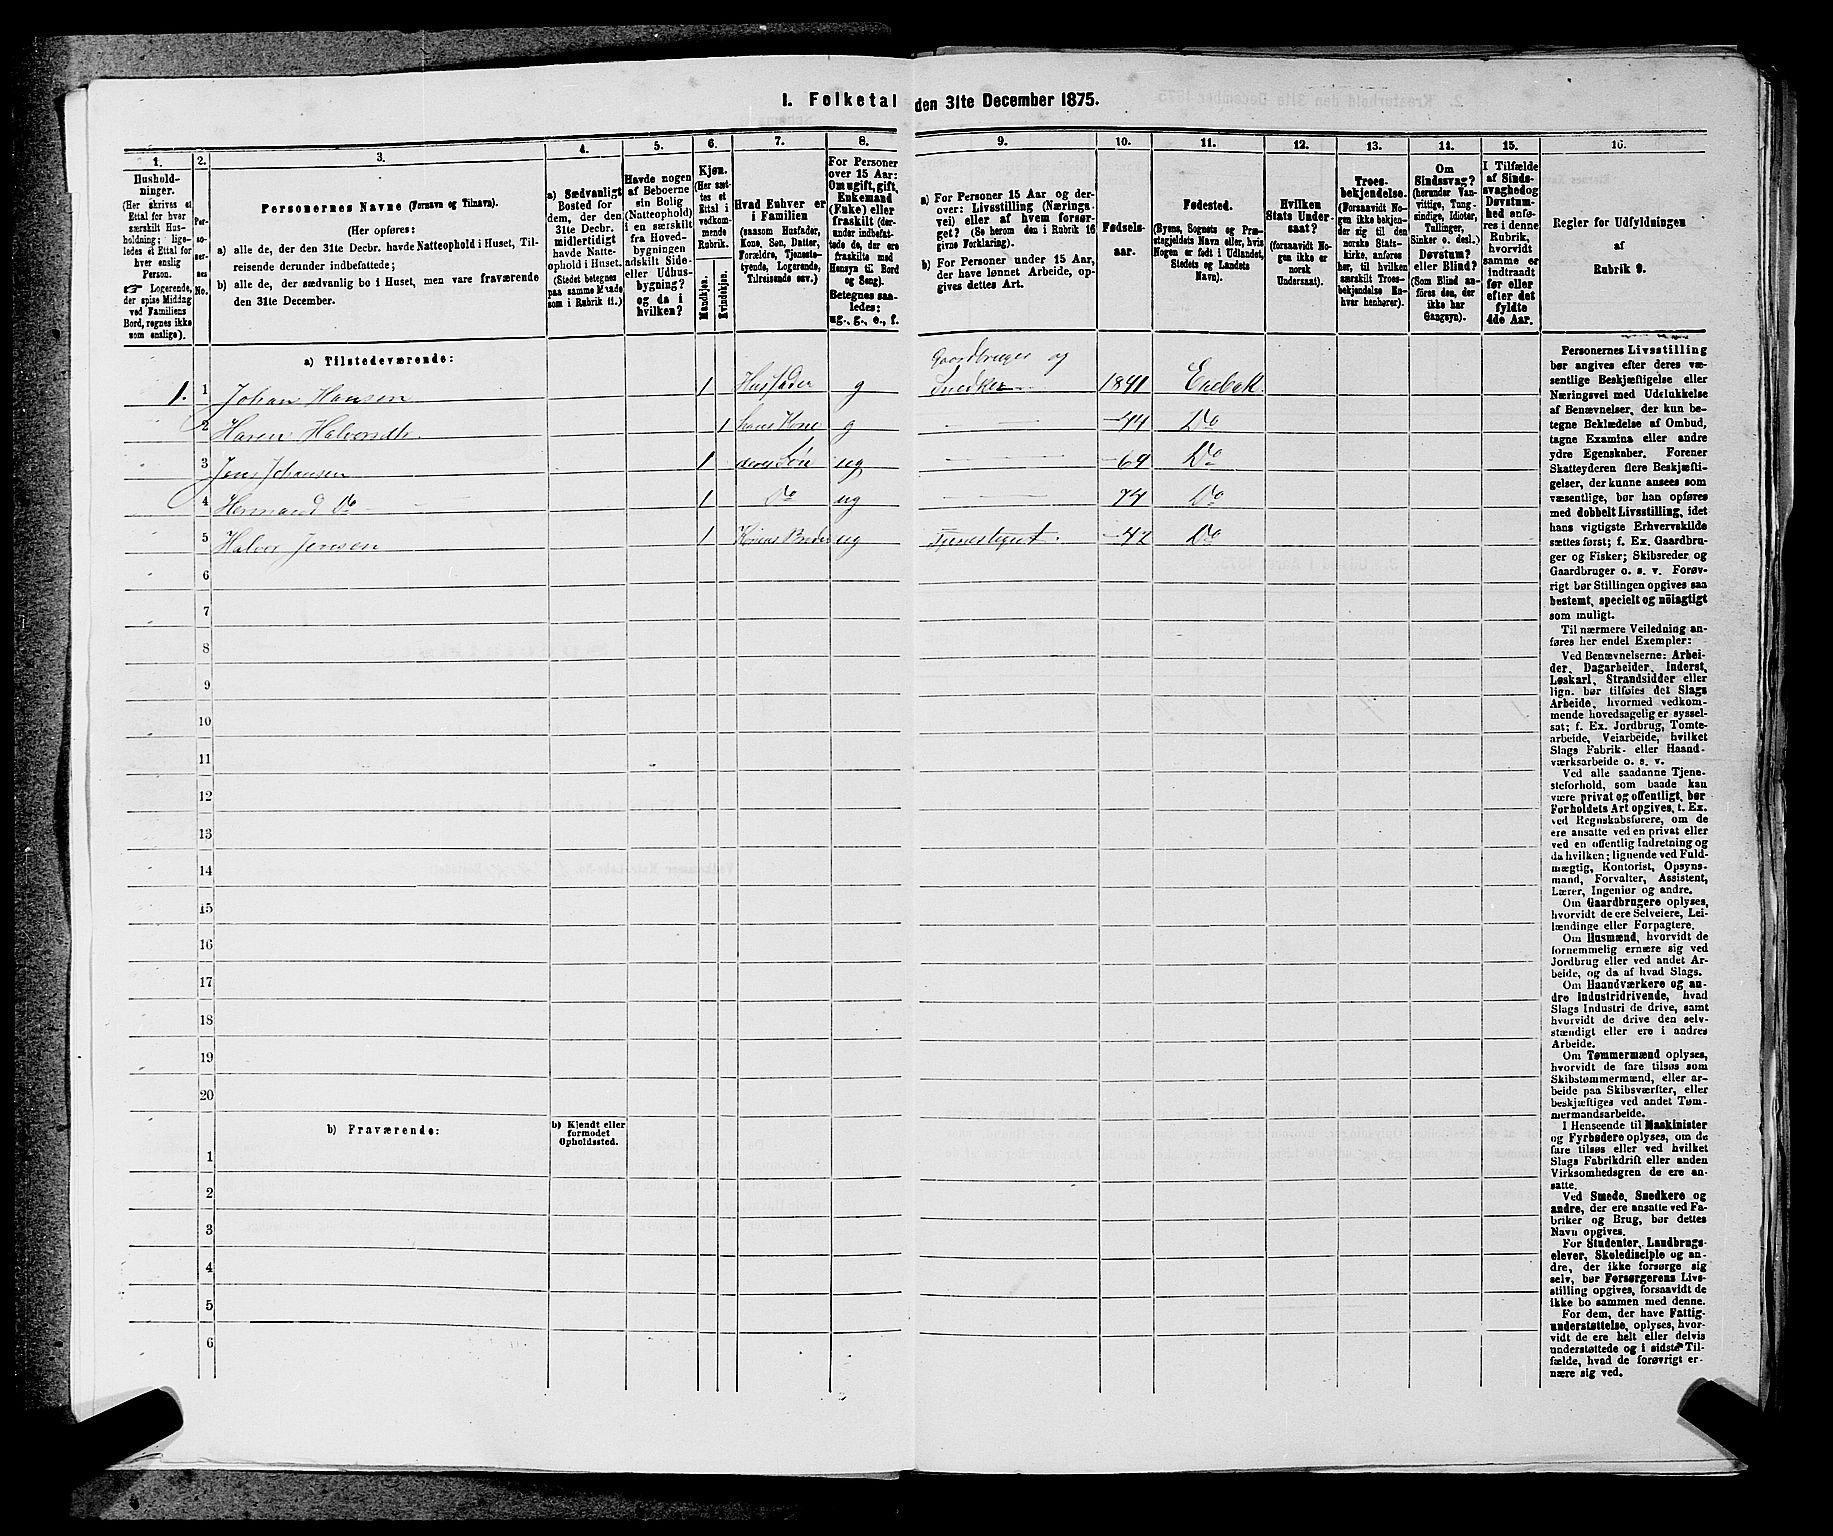 I. Folketal den 31te December 1875.
1.
Hushold-
ninger.
(Her skrives et
Ettal for hver
særskilt Hus-
holdning; lige-
ledes et Ettal for
hver enslig
Person.
☞ Logerende,
der spise Middag
ved Familiens
Bord, regnes ikke
som enslige).
2.
Per-
so-
ner-
nes
No.
3.
Personernes Navne (Fornavn og Tilnavn).
(Her opføres:
a) alle de, der den 31te Decbr. havde Natteophold i Huset, Til-
reisende derunder indbefattede;
b) alle de, der sædvanlig bo i Huset, men vare fraværende
den 31te December.
4.
a) Sædvanligt
Bosted for
dem, der den
31te Decbr.
midlertidigt
havde Natte-
ophold i Huset.
(Stedet betegnes
paa samme Maade
som i Rubrik 11.)
5.
Havde nogen
af Beboerne
sin Bolig
(Natteophold)
i en særskilt
fra Hoved-
bygningen
adskilt Side-
eller Udhus-
bygning?
og da i
hvilken?
6.
Kjøn.
(Her sæt-
tes et
Ettal i
vedkom-
mende
Rubrik.
Mandkjøn.
Kvindekjøn.
7.
Hvad Enhver er
i Familien
(saasom Husfader,
Kone, Søn, Datter,
Forældre, Tjeneste-
tyende, Logerende,
Tilreisende osv.)
8.
For Personer
over 15 Aar:
Om ugift, gift,
Enkemand
(Enke) eller
fraskilt (der-
under indbefat-
tede de, der ere
fraskilte med
Hensyn til Bord
og Seng).
Betegnes saa-
ledes:
ug., g., e., f.
9.
a) For Personer 15 Aar og der-
over: Livsstilling (Nærings-
vei) eller af hvem forsør-
get? (Se herom den i Rubrik 16
givne Forklaring).
b) For Personer under 15 Aar,
der have lønnet Arbeide, op-
gives dettes Art.
10.
Fødsels-
aar.
11.
Fødested.
(Byens, Sognets og Præ-
stegjeldets Navn eller, hvis
Nogen er født i Udlandet,
Stedets og Landets
Navn).
12.
Hvilken
Stats Under-
saat?
(forsaavidt No-
gen ikke er
norsk
Undersaat).
13.
Troes-
bekjendelse.
(Forsaavidt Nogen
ikke bekjen-
der sig til den
norske Stats-
kirke, anføres
her, til hvilken
særskilt Troes-
bekjendelse En-
hver henhører).
14.
Om
Sindssvag?
(herunder Van-
vittige, Tung-
sindige, Idioter,
Tullinger,
Sinker o. desl.)
Døvstum?
eller Blind?
(Som Blind an-
føres den, der
ikke har
Gangsyn).
15.
I Tilfælde
af Sinds-
svaghed og
Døvstum-
hed anfø-
res i denne
Rubrik,
hvorvidt
samme er
indtraadt
før eller
efter det
fyldte
4de Aar.
16.
Regler for Udfyldningen
af
Rubrik 9.
a) Tilstedeværende:
Gaardbruger og
1. 1 Johan Hansen 1 Husfader g Snedker 1841 Enebak
2 Karen Halvorsdtr. 1 hans Kone g — — —44 Do
3 Jens Johansen 1 deres Søn ug — — —69 Do
4 Hermand Do 1 Do ug — — 74 Do
5 Halvor Jensen 1 Konens Broder ug Tjenestegut. —42 Do
6
7
8
9
10
11
12
13
14
15
16
17
18
19
20
b) Fraværende:
b) Kjendt eller
formodet
Opholdssted.
1
2
3
4
5
6
Personernes Livsstilling
bør angives efter deres væ-
sentlige Beskjæftigelse eller
Næringsvei med Udelukkelse
af Benævnelser, der kun be-
tegne Beklædelse af Ombud,
tagne Examina eller andre
ydre Egenskaber. Forener
Skatteyderen flere Beskjæfti-
gelser, der kunne ansees som
væsentlige, bør han opføres
med dobbelt Livsstilling, idet
hans vigtigste Erhvervskilde
sættes først; f. Ex. Gaardbru-
ger og Fisker; Skibsreder og
Gaardbruger o. s. v. Forøv-
rigt bør Stillingen opgives saa
bestemt, specielt og nöiagtigt
som muligt.
Til nærmere Veiledning an-
føres her endel Exempler:
Ved Benævnelserne: Arbei-
der, Dagarbeider, Inderst,
Løskarl, Strandsidder eller
lign. bør tilføies det Slags
Arbeide, hvormed vedkom-
mende hovedsagelig er syssel-
sat; f. Ex. Jordbrug, Tomte-
arbeide, Veiarbeide, hvilket
Slags Fabrik- eller Haand-
værksarbeide o. s. v.
Ved alle saadanne Tjene-
steforhold, som baade kan
være privat og offentligt, bør
Forholdets Art opgives, t. Ex.
ved Regnskabsførere, om de
ere ansatte ved en privat eller
ved en offentlig Indretning og
da hvilken; lignende ved Fuld-
mægtig, Kontorist, Opsyns-
mand, Forvalter, Assistent,
Lærer, Ingeniør og andre.
Om Gaardbrugere oplyses,
hvorvidt de ere Selveiere, Lei-
lændinge eller Forpagtere.
Om Husmænd, hvorvidt de
fornemmelig ernære sig ved
Jordbrug eller ved andet Ar-
beide, og da af hvad Slags.
Om Haandværkere og an-
dre Industridrivende, hvad
Slags Industri de drive, samt
hvorvidt de drive den selv-
stændigt eller ere i andres
Arbeide.
Om Tømmermænd oplyses,
hvorvidt de fare tilsøs som
Skibstømmermænd, eller ar-
beide paa Skibsværfter, eller
beskjæftiges ved andet Tøm-
mermandsarbeide.
I Henseende til Maskinister
og Fyrbødere oplyses, om de
fare tilsøs eller ved hvilket
Slags Fabrikdrift eller anden
Virksomhedsgren de ere an-
satte.
Ved Smede, Snedkere og
andre, der ere ansatte ved Fa-
briker og Brug, bør dettes
Navn opgives.
For Studenter, Landbrugs-
elever, Skoledisciple og an-
dre, der ikke forsørge sig
selv, bør Forsørgerens Livs-
stilling opgives, forsaavidt de
ikke bo sammen med denne.
For dem, der have Fattig-
understøttelse, oplyses, hvor-
vidt de ere helt eller delvis
understøttede og i sidste Til-
fælde, hvad de forøvrigt er-
nære sig ved.